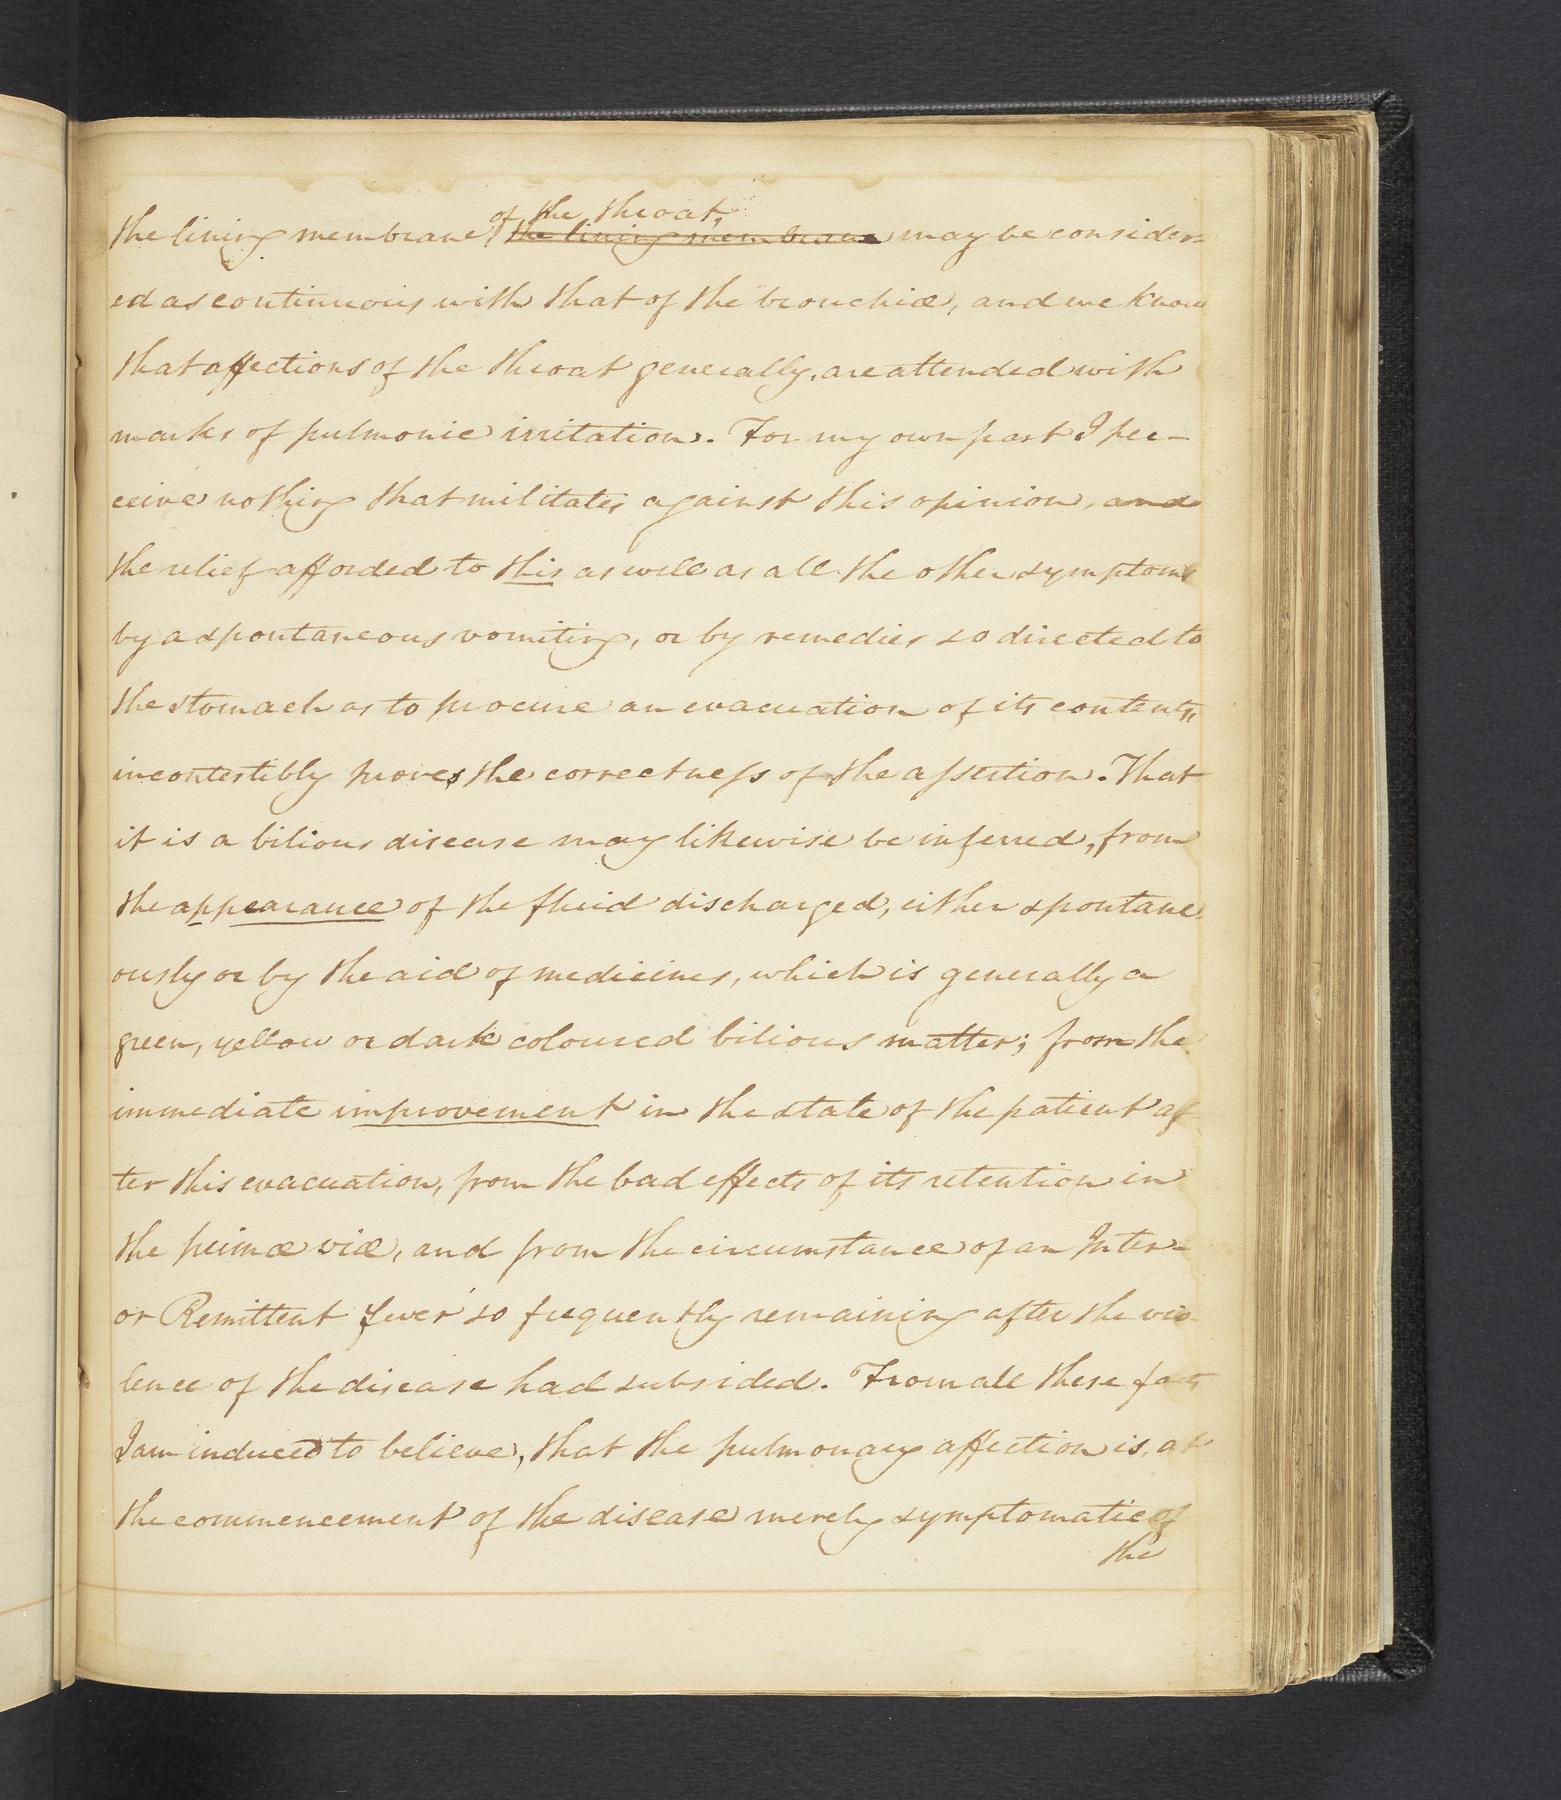 of the throat,
the lining membrane the lining membrane may be consider-
ed as continuous with that of the bronchiæ, and we know
that affections of the throat generally, are attended with
marks of pulmonic irritation. For my own part I per-
ceive nothing that militates against this opinion, and
the relief afforded to this as well as all the other symptoms
by a spontaneous vomiting, or by remedies so directed to
the stomach as to procure an evacuation of its contents,
incontestibly proves the correctness of the assertion. That
it is a bilious disease may likewise be inferred, from
the appearance of the fluid discharged, either spontane-
ously or by the aid of medicines, which is generally a
green, yellow or dark coloured bilious matter; from the
immediate improvement in the state of the patient af-
ter this evacuation, from the bad effects of its retention in
the primæ viæ, and from the circumstance of an Inter-
or Remittent fever so frequently remaining after the vio-
lence of the disease had subsided. From all these facts
I am induced to believe, that the pulmonary affection is, at
the commencement of the disease merely symptomatic of
the